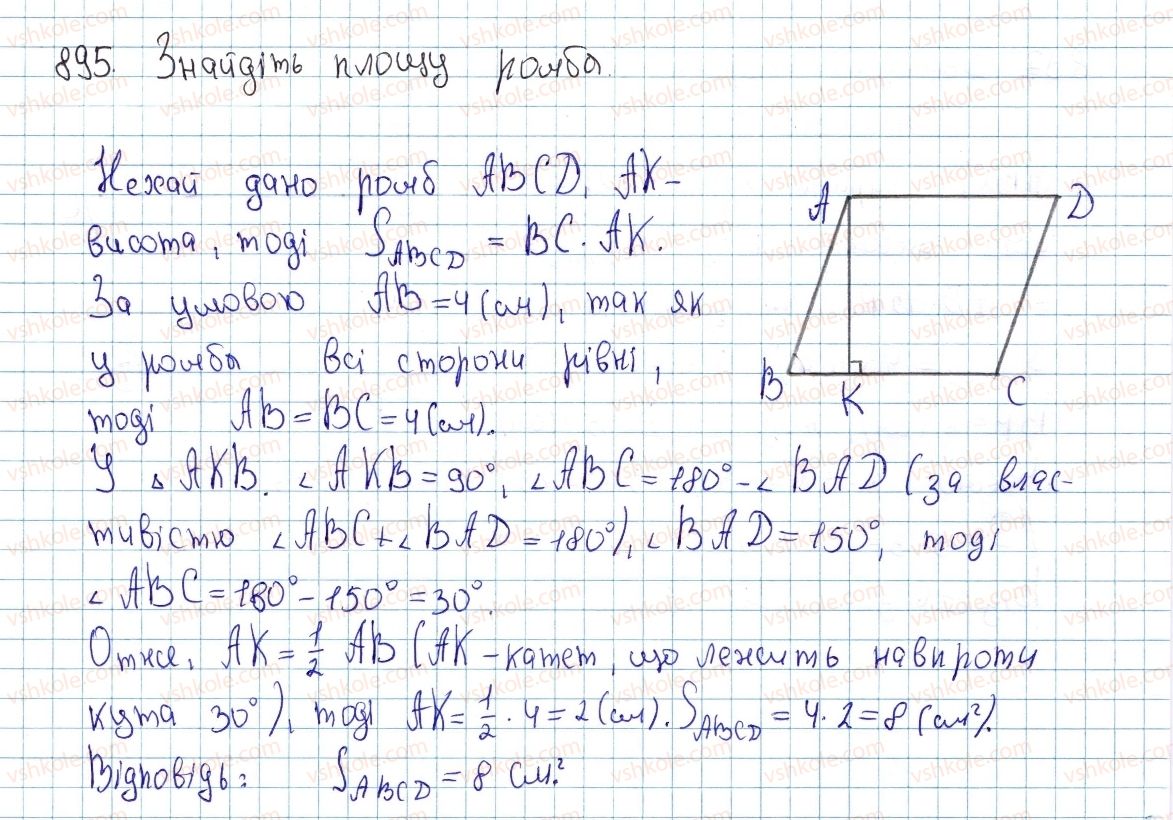 895. Знайдіть площу ромба.
Нехай дано ромб ABCD, AK-
висота, тоді S ABCD = BC · AK.
За умовою AB = 4 (см), так як
у ромба всі сторони рівні,
тоді AB = BC = 4 (см).
У ▵ AKB. ∠ AKB = 90°, ∠ ABC = 180° - ∠ BAD (за влас-
тивістю ∠ ABC + ∠ BAD = 180°), ∠ BAD = 150°, тоді
∠ ABC = 180° - 150° = 30°.
Отже, AK = 1/2 AB (AK - катет, що лежить навпроти
кута 30°), тоді AK = 1/2 · 4 = 2 (см). S ABCD = 4 · 2 = 8 (см²).
Відповідь: S ABCD = 8 см².
A D
B K C
vshkole.com